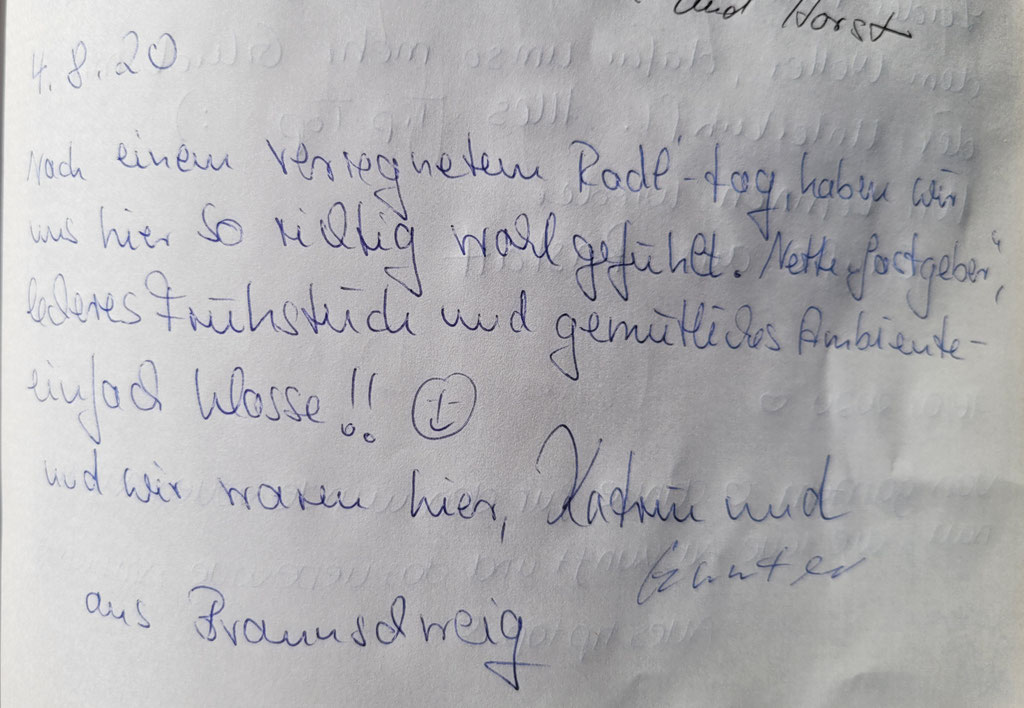 und Horst
4.8.20
Nach einem verregnetem Radl-tag, haben wir
uns hier so richtig wohl gefühlt. Nette „Gastgeber“,
leckeres Frühstück und gemütliches Ambiente -
einfach klasse!!
und wir waren hier, Katrin und
Günter
aus Braunschweig